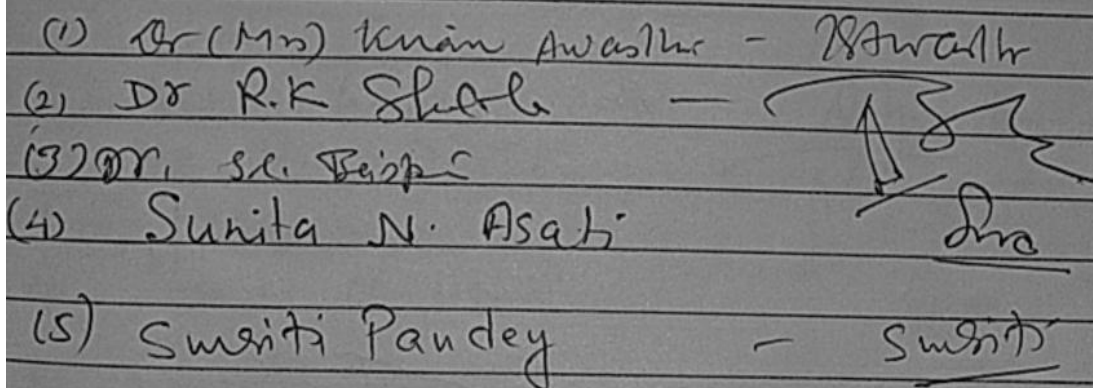 (1) Dr (Mrs) Kiran Awasthi - KAwasthi
(2) Dr R.K -
(3) Dr. S.C.
(4) Sunita N. Asati
(5) Smriti Pandey - Smriti